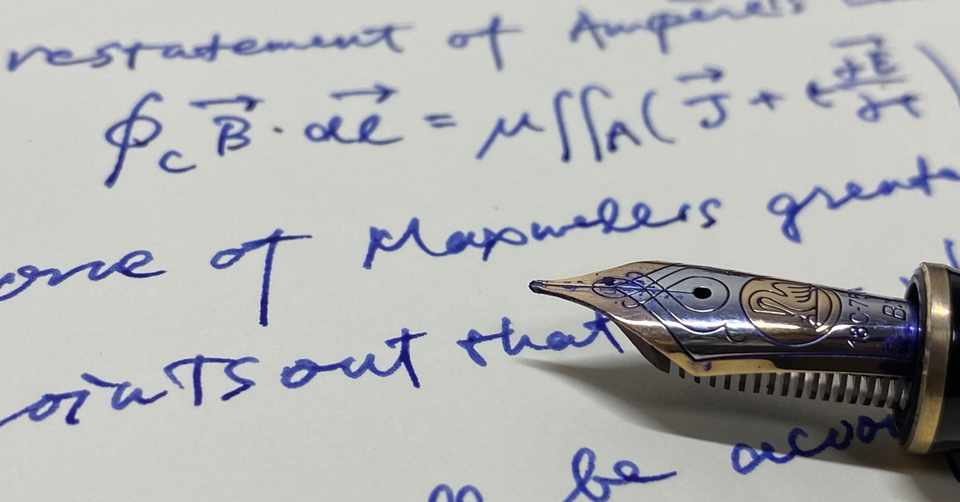 restatement of Ampere's
∮_C B⃗ · d⃗l = μ ∬_A ( J⃗ + ε ∂E⃗/∂t )
one of Maxwells
oints out that
be
18C-7
B.